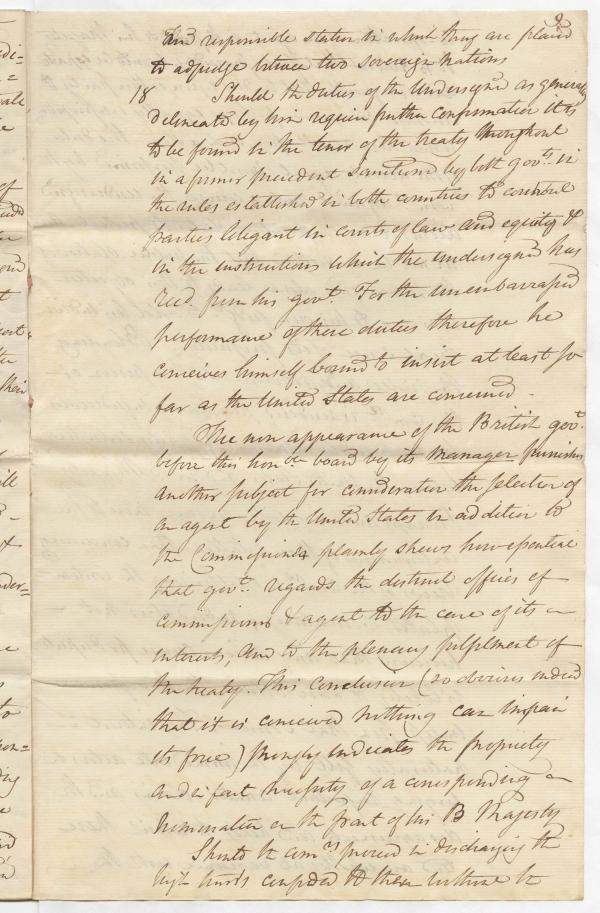 9
and responsible station in which they are placed
to adjudge between two sovereign nations
18 Should the duties of the undersigned as generally
delineated by him require further confirmation it is
to be found in the tenor of the treaty throughout
in a former precedent sanctioned by both govts. in
the rules established in both countries to controul
parties litigant in courts of law and equity &
in the instructions which the undersigned has
recd. from his govt. For the unembarrassed
performance of these duties therefore he
conceives himself bound to insist at least so
far as the United States are concerned -
The non appearance of the British govt.
before this honble board by its manager furnishes
another subject for consideration the selection of
an agent by the United States in addition to
the Commissioner plainly shews how essential
that govt. regards the distinct offices of
commissioner & agent to the care of its
interests, and to the plenary fulfilment of
the treaty. This conclusion (so obvious indeed
that it is conceived nothing can impair
its force) strongly indicates the propriety
and in fact necessity of a corresponding
nomination on the part of his B Majesty
Should the comrs proceed in discharging the
high trusts confided to them without the